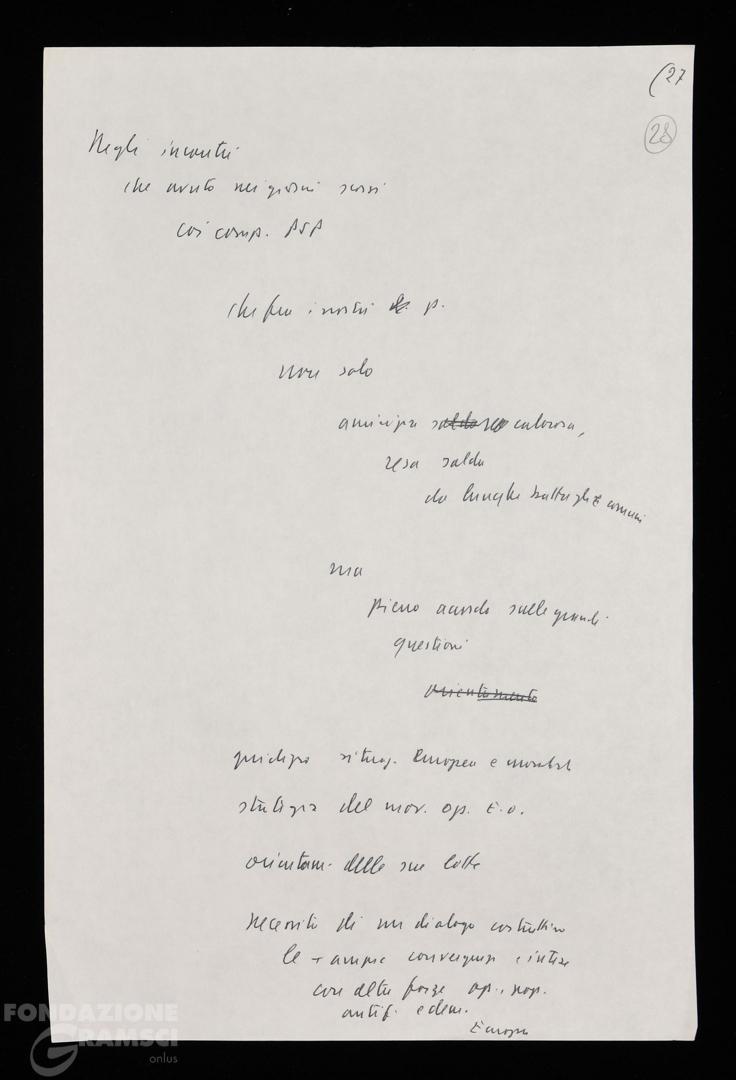 (27
28
Negli incontri
che avuto nei giorni scorsi
coi comp.
che fra i nostri p.
non solo
amicizia calorosa,
resa salda
da lunghe battaglie comuni
ma
pieno accordo sulle grandi
questioni
orientamento
giudizio situaz. Europea e mondial
strategia del mov. op. E.O.
orientam. delle sue lotte
necessità di un dialogo costruttivo
le + ampie convergenze e intese
con altre forze op., pop.
antif. e dem.
Europa
FONDAZIONE
GRAMSCI
onlus